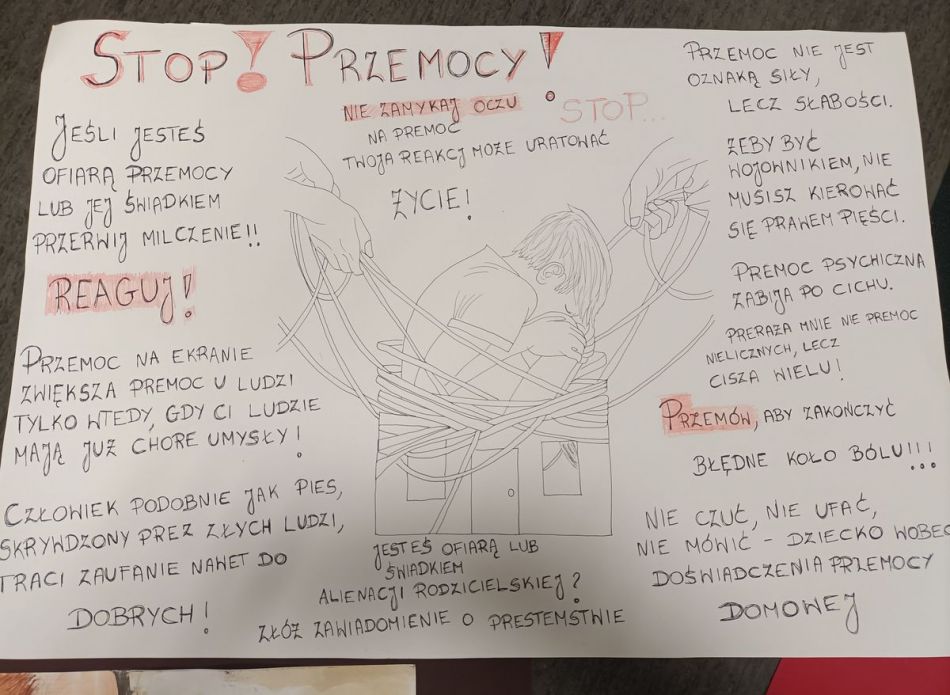 STOP! PRZEMOCY!
NIE ZAMYKAJ OCZU
NA PREMOC
TWOJA REAKCJ MOŻE URATOWAĆ
ŻYCIE!
STOP...
JEŚLI JESTEŚ
OFIARĄ PRZEMOCY
LUB JEJ ŚWIADKIEM
PRZERWIJ MILCZENIE!!
REAGUJ!
PRZEMOC NA EKRANIE
ZWIĘKSZA PREMOC U LUDZI
TYLKO WTEDY, GDY CI LUDZIE
MAJĄ JUŻ CHORE UMYSŁY!
CZŁOWIEK PODOBNIE JAK PIES,
SKRYWDZONY PREZ ZŁYCH LUDZI,
TRACI ZAUFANIE NAWET DO
DOBRYCH!
JESTEŚ OFIARĄ LUB
ŚWIADKIEM
ALIENACJI RODZICIELSKIEJ?
ZŁÓŻ ZAWIADOMIENIE O PRESTEMSTWIE
PRZEMOC NIE JEST
OZNAKĄ SIŁY,
LECZ SŁABOŚCI.
ŻEBY BYĆ
WOJOWNIKIEM, NIE
MUSISZ KIEROWAĆ
SIĘ PRAWEM PIĘŚCI.
PREMOC PSYCHICZNA
ZABIJA PO CICHU.
PRERAŻA MNIE NIE PREMOC
NIELICZNYCH, LECZ
CISZA WIELU!
PRZEMÓW, ABY ZAKOŃCZYĆ
BŁĘDNE KOŁO BÓLU!!!
NIE CZUĆ, NIE UFAĆ,
NIE MÓWIĆ - DZIECKO WOBEC
DOŚWIADCZENIA PRZEMOCY
DOMOWEJ